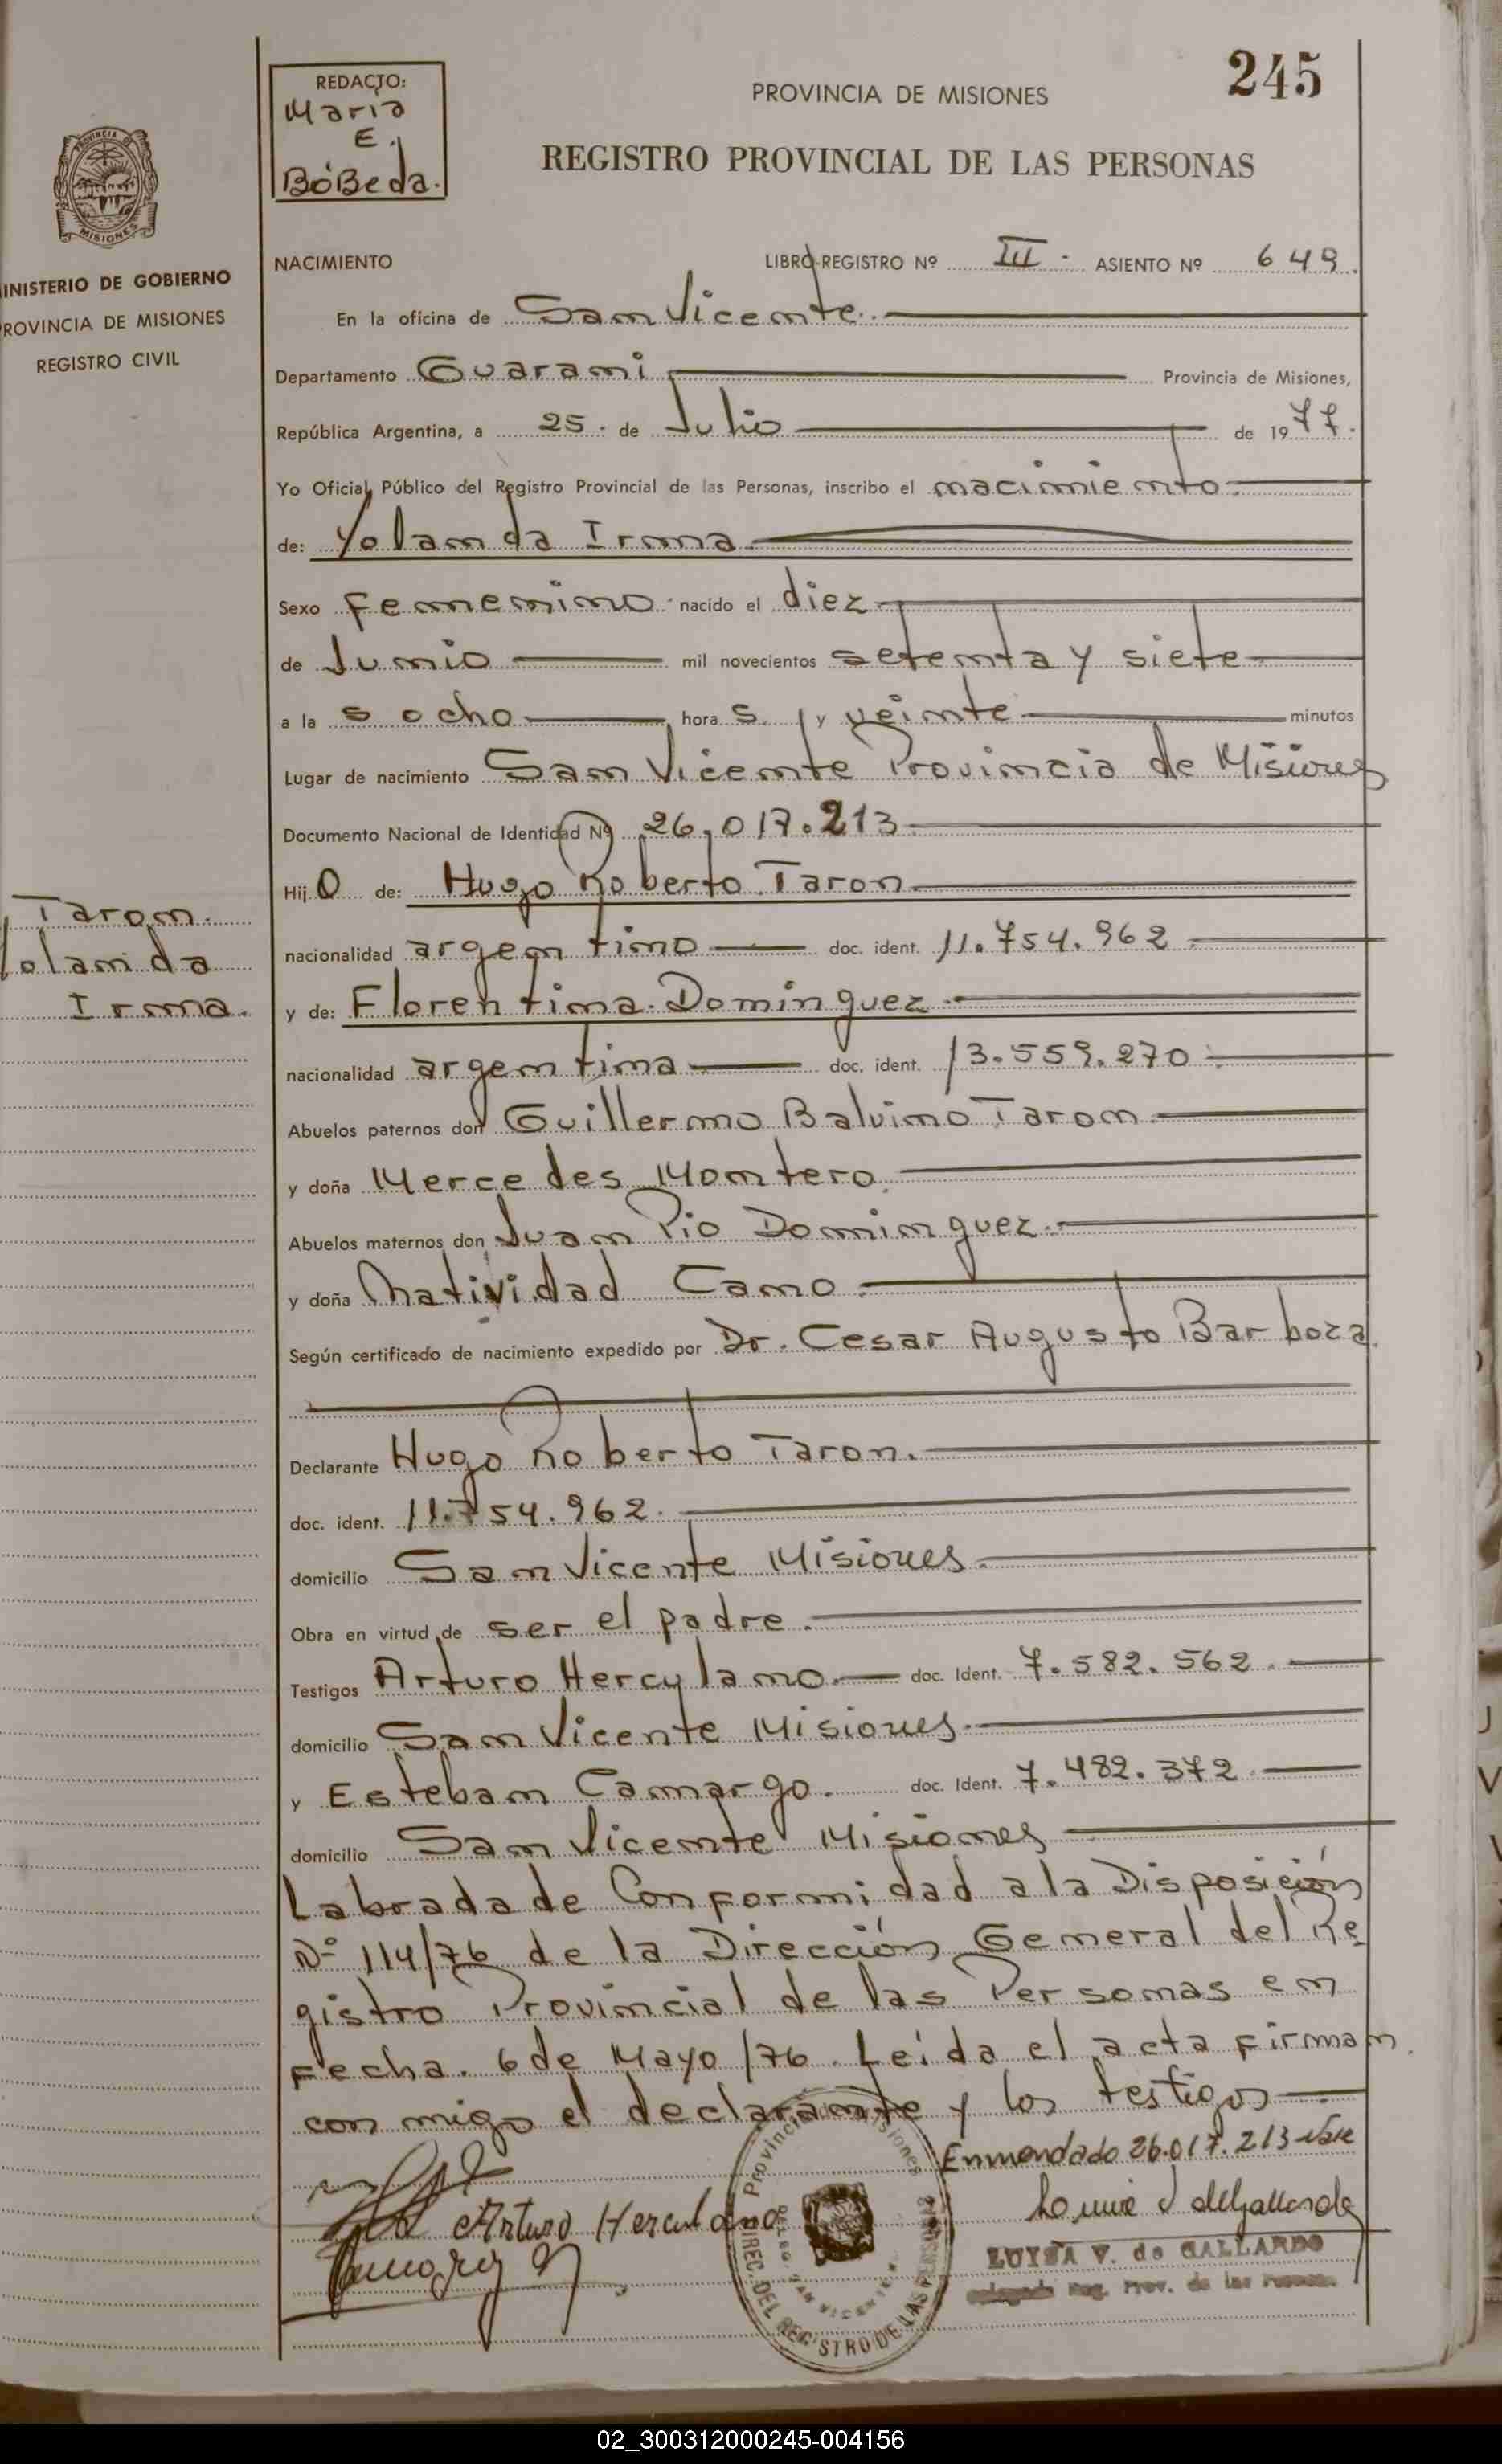 245
REDACTO:
Maria
E.
BóBeda.
PROVINCIA DE MISIONES
REGISTRO PROVINCIAL DE LAS PERSONAS
PROVINCIA DE
MISIONES
INISTERIO DE GOBIERNO
ROVINCIA DE MISIONES
REGISTRO CIVIL
NACIMIENTO LIBRO-REGISTRO Nº III - ASIENTO Nº 649.
En la oficina de San Vicente.
Departamento Guarani Provincia de Misiones,
República Argentina, a 25. de Julio de 1977.
Yo Oficial Público del Registro Provincial de las Personas, inscribo el nacimiento.
de: Yolanda Irma.
Sexo femenino nacido el diez
de Junio mil novecientos setenta y siete
a la s ocho hora s. y veinte minutos
Lugar de nacimiento San Vicente Provincia de Misiones
Documento Nacional de Identidad Nº 26.017.213
Hij O de: Hugo Roberto Taron
nacionalidad argentino doc. ident. 11.754.962
y de: Florentina Dominguez
nacionalidad argentina doc. ident. 13.559.270
Abuelos paternos don Guillermo Balvino Taron
y doña Mercedes Montero
Abuelos maternos don Juan Pio Dominguez
y doña Natividad Cano
Según certificado de nacimiento expedido por Dr. Cesar Augusto Barboza.
Declarante Hugo Roberto Taron.
doc. ident. 11.754.962.
domicilio San Vicente Misiones.
Obra en virtud de ser el padre.
Testigos Arturo Herculano. doc. Ident. 7.582.562.
domicilio San Vicente Misiones.
y Esteban Camargo. doc. Ident. 7.482.372.
domicilio San Vicente Misiones
Labrada de Conformidad a la Disposición
Nº 114/76 de la Dirección General del Re
gistro Provincial de las Personas en
Fecha. 6 de Mayo /76. Leida el acta firman.
con migo el declarante y los testigos
Taron.
Yolanda
Irma.
Enmendado 26.017.213 Vale
Arturo Herculano
Provincia de Misiones
DIREC. DEL REGISTRO DE LAS PERSONAS
DELEG. SAN VICENTE
LUISA V. de GALLARDO
Delegada Reg. Prov. de las Personas
02_300312000245-004156